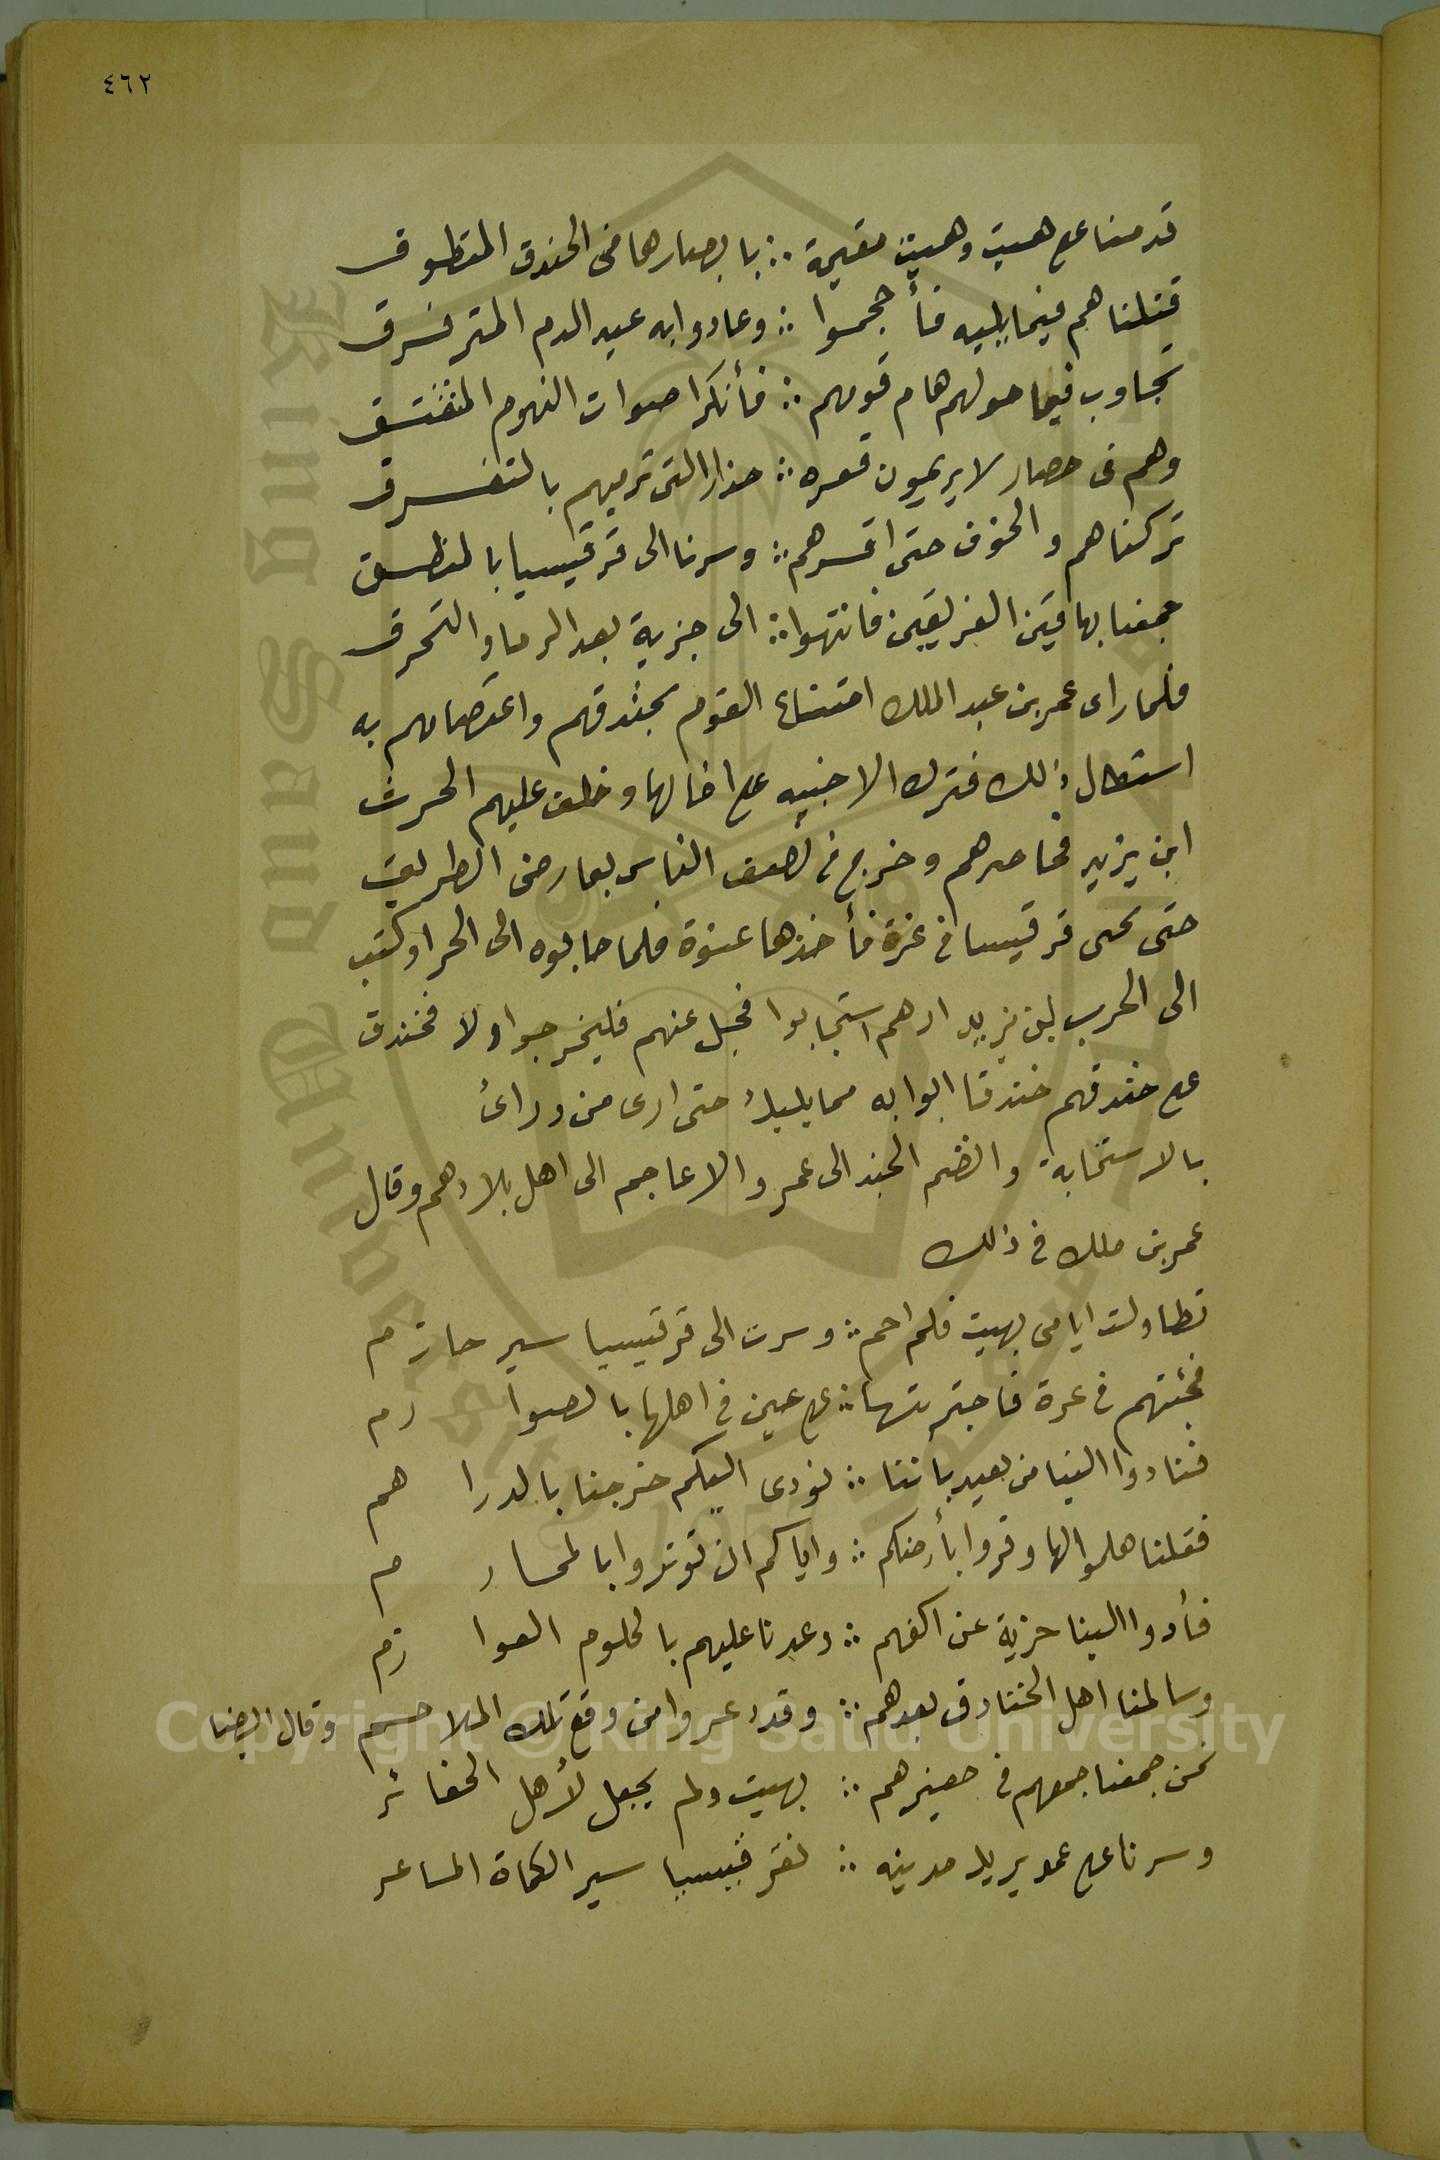 ٤٦٢
قدمنا على هيت وهيت مقيمة ∴ بابصارها في الخندق المتطوق
قتلناهم فيما يليه فأحجموا ∴ وعادوا به عيد الدم المترقرق
تجاوب فيما حولهم هام قومهم ∴ فأنكر اصوات النهوم المنقنق
وهم في حصار لا يريمون قعره ∴ حذار التي ترميهم بالتفرق
تركناهم والخوف حتى اقرهم ∴ وسرنا الى قرقيسيا بالمنطق
جمعنا بها بين الفريقين فانتهوا ∴ الى جزية بعد الرماو التحرق
فلما راى عمر بن عبد الملك امتناع القوم بخندقهم واعتصامهم به
استطال ذلك فترك الاخبيه على حالها وخلف عليهم الحرث
ابن يزيد فحاصرهم وخرج في نصف الناس يعارض الطريق
حتى يحى قرقيسا في غرة فأخذها عنوة فلما جابوه الى الجزا وكتب
الى الحرب بن يزيد ان هم استجابوا فخل عنهم فليخرجوا ولا فخندق
على خندقهم خندقا ابوابه مما يليك حتى ارى من ورائ
بالاستجابة وانضم الجند الى عمر والاعاجم الى اهل بلادهم وقال
عمر بن ملك في ذلك
تطاولت ايامى بهيت فلم احم ∴ وسرت الى قرقيسيا سير حازم
فجئتهم في غرة فاجتزيتها ∴ على عين في اهلها بالصوا رم
فنادوا الينا من بعيد باننا ∴ نودى اليكم خرجنا بالدرا هم
فقلنا هلموالها وقروا بأرضكم ∴ واياكم ان توتروا بالمحار م
فأدوا الينا جزية عن اكفهم ∴ وعدنا عليهم بالحلوم العوا زم
وسالمنا اهل الخنادق بعدهم ∴ وقد دعروا من وقع تلك الملاحم وقال ايضا
نحن جمعنا جمعهم في حفيرهم ∴ بهيت ولم يجعل لأهل الحفائر
وسرنا على عمد يريد مدينه ∴ نقرقيسيا سير الكماة المساعر